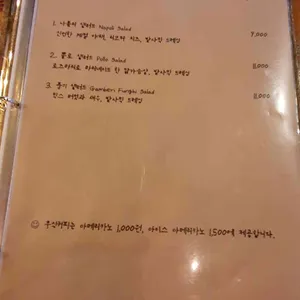 1. 나폴리 샐러드 Napoli Salad
신선한 계절 야채, 치즈, 발사믹 드레싱 7,000
2. 뽈로 샐러드 Pollo Salad
로즈마리로 마리네이드 한 닭가슴살, 발사믹 드레싱 8,000
3. 풍기 샐러드 Gamberi Funghi Salad
버섯과 새우, 발사믹 드레싱 8,000
아메리카노 1,000원, 아이스 아메리카노 1,500에 제공합니다.